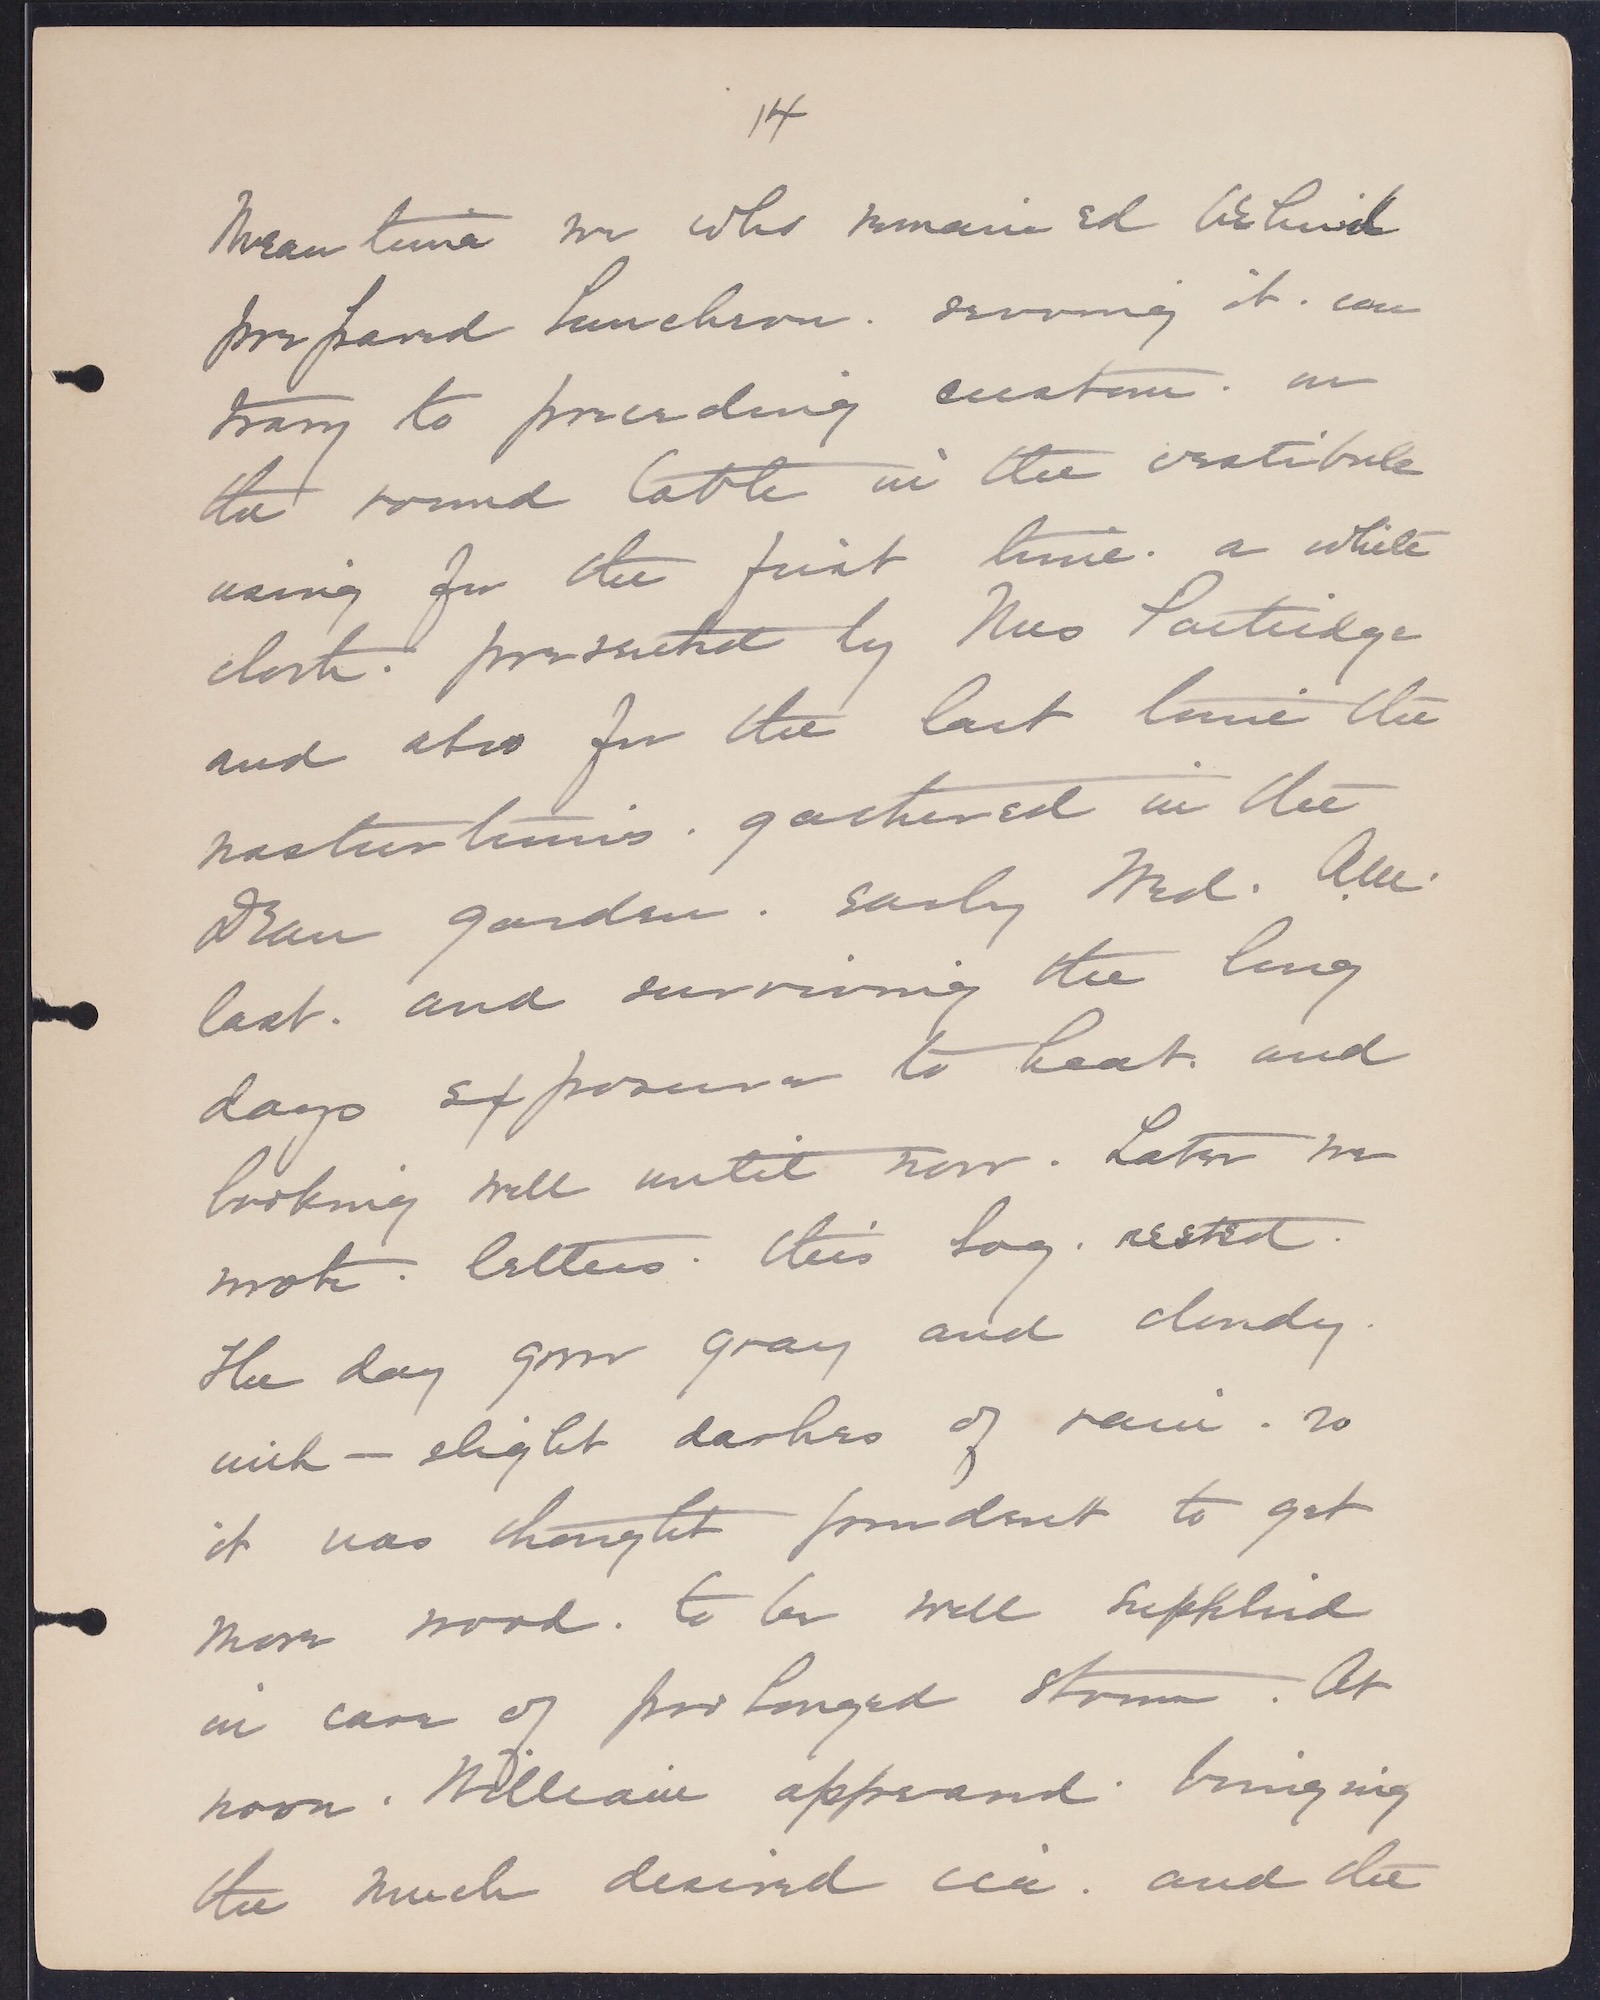 14
Meantime we who remained behind
prepared luncheon. serving it. con
trary to preceding custom. on
the round table in the vestibule
using for the first time. a white
cloth. presented by Mrs Partridge
and also for the last time the
nasturtiums. gathered in the
Dean garden. early Wed. A.M.
last. and surviving the long
days exposure to heat. and
looking well until now. Later we
wrote. letters. this log. rested.
The day grew gray and cloudy.
with — slight dashes of rain. so
it was thought prudent to get
more wood. to be well supplied
in case of prolonged storm. At
noon. William appeared. bringing
the much desired ice. and the